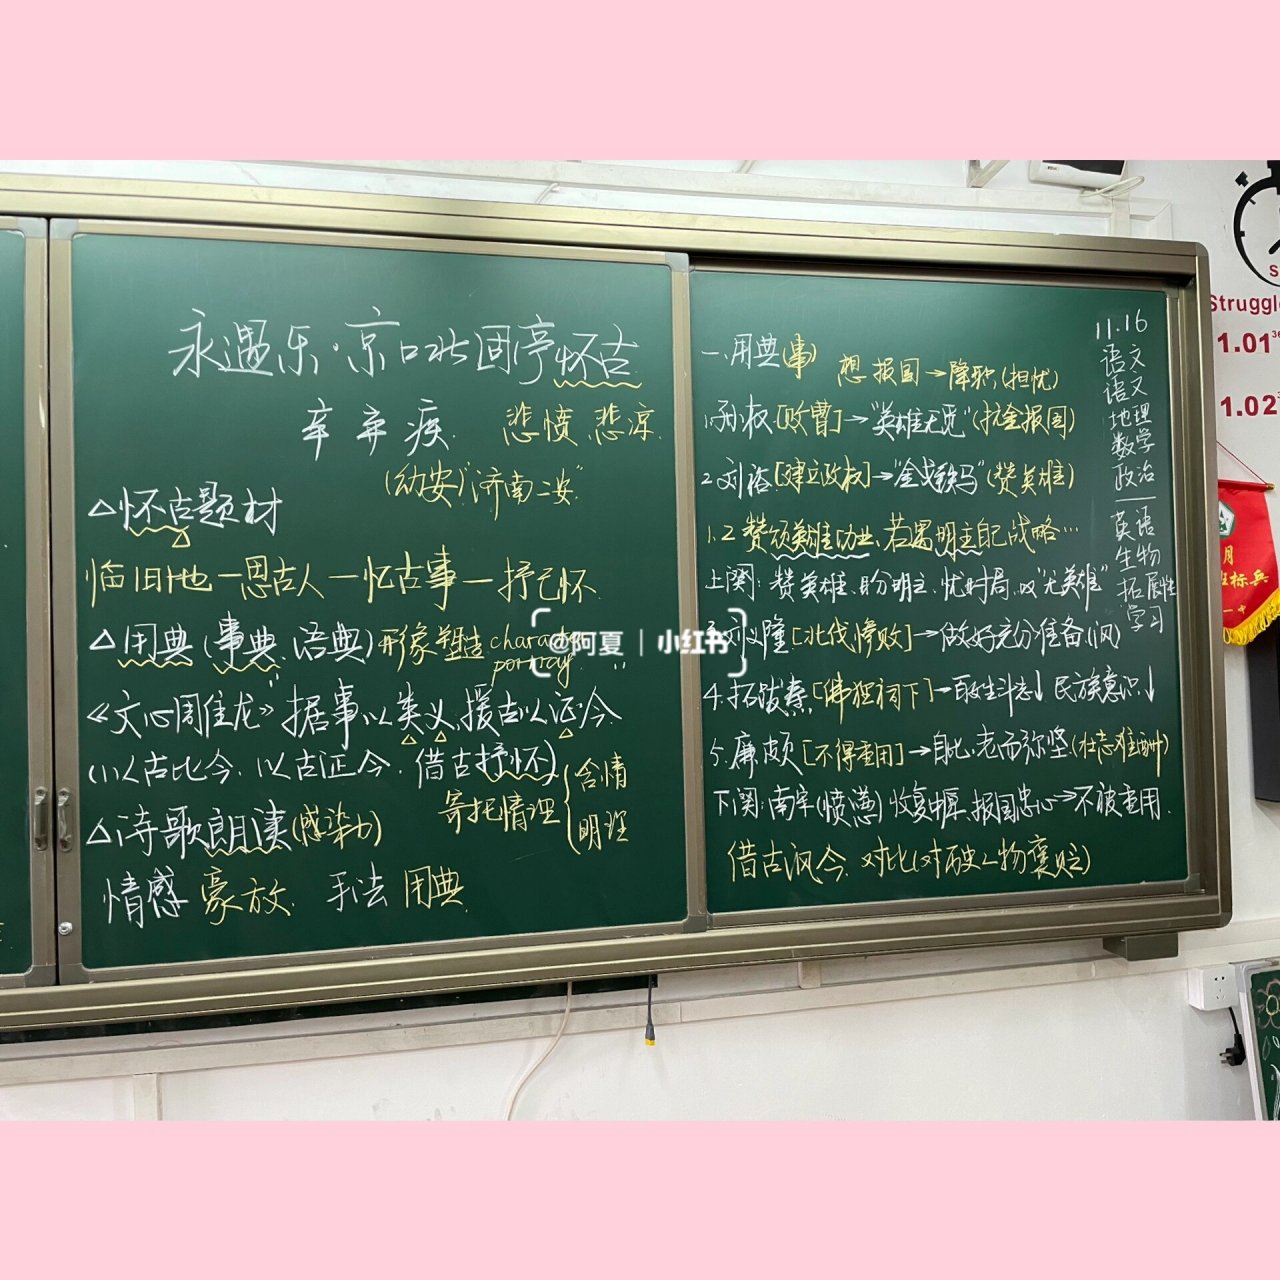 永遇乐·京口北固亭怀古
辛弃疾 悲愤 悲凉
(幼安)"济南二安"
△怀古题材
临旧地—思古人—忆古事—抒己怀
△用典(事典、语典)形象塑造 character portray
《文心周隹龙》据事以类义、援古以证今
(以古比今、以古证今、借古抒怀)
寄托情理{含情 明理
△诗歌朗读(感染力)
情感 豪放 手法 用典
一、用典(事) 想报国→降职(担忧)
1.孙权[败曹]→"英雄无觅"(抗金报国)
2.刘裕[建立政权]→"金戈铁马"(赞英雄)
1.2 赞颂英雄功业、若遇明主自己战略…
上阕:赞英雄、盼明主、忧时局,叹"无英雄"
3.刘义隆[北伐惨败]→做好充分准备(讽)
4.拓跋焘[佛狸祠下]→百姓斗志↓ 民族意识↓
5.廉颇[不得重用]→自比、老而弥坚(壮志难酬)
下阕:南宋(愤懑)收复中原、报国忠心→不被重用
借古讽今 对比(对历史人物褒贬)
11.16
语文
语文
地理
数学
政治
英语
生物
拓展性
学习
@阿夏 | 小红书
Struggle
1.01
1.02
月
班标兵